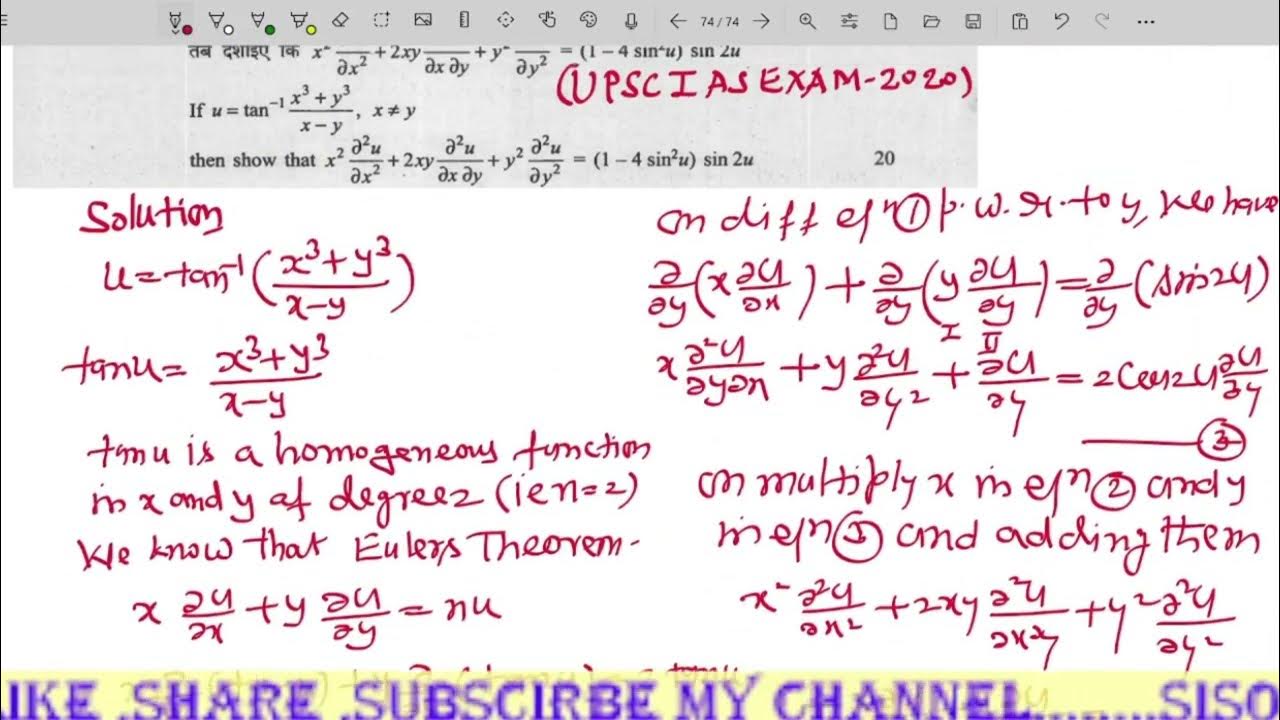 74 / 74
तब दर्शाइए कि x² ∂x² + 2xy ∂x ∂y + y² ∂y² = (1 – 4 sin²u) sin 2u
(UPSC IAS EXAM-2020)
If u = tan⁻¹ (x³ + y³)/(x – y), x ≠ y
then show that x² ∂²u/∂x² + 2xy ∂²u/∂x ∂y + y² ∂²u/∂y² = (1 – 4 sin²u) sin 2u 20
Solution
u = tan⁻¹ ((x³ + y³)/(x - y))
tan u = (x³ + y³)/(x - y)
tan u is a homogeneous function
in x and y of degree 2 (i e n = 2)
We know that Eulers Theorem -
x ∂u/∂x + y ∂u/∂y = nu
on diff eqⁿ ① p. w. r. to y, we have
∂/∂y (x ∂u/∂x) + ∂/∂y (y ∂u/∂y) = ∂/∂y (sin 2u)
I II
x ∂²u/∂y∂x + y ∂²u/∂y² + ∂u/∂y = 2 Cos 2u ∂u/∂y
③
on multiply x in eqⁿ ② and y
in eqⁿ ③ and adding them
x² ∂²u/∂x² + 2xy ∂²u/∂x∂y + y² ∂²u/∂y²
LIKE .SHARE .SUBSCIRBE MY CHANNEL........SISO